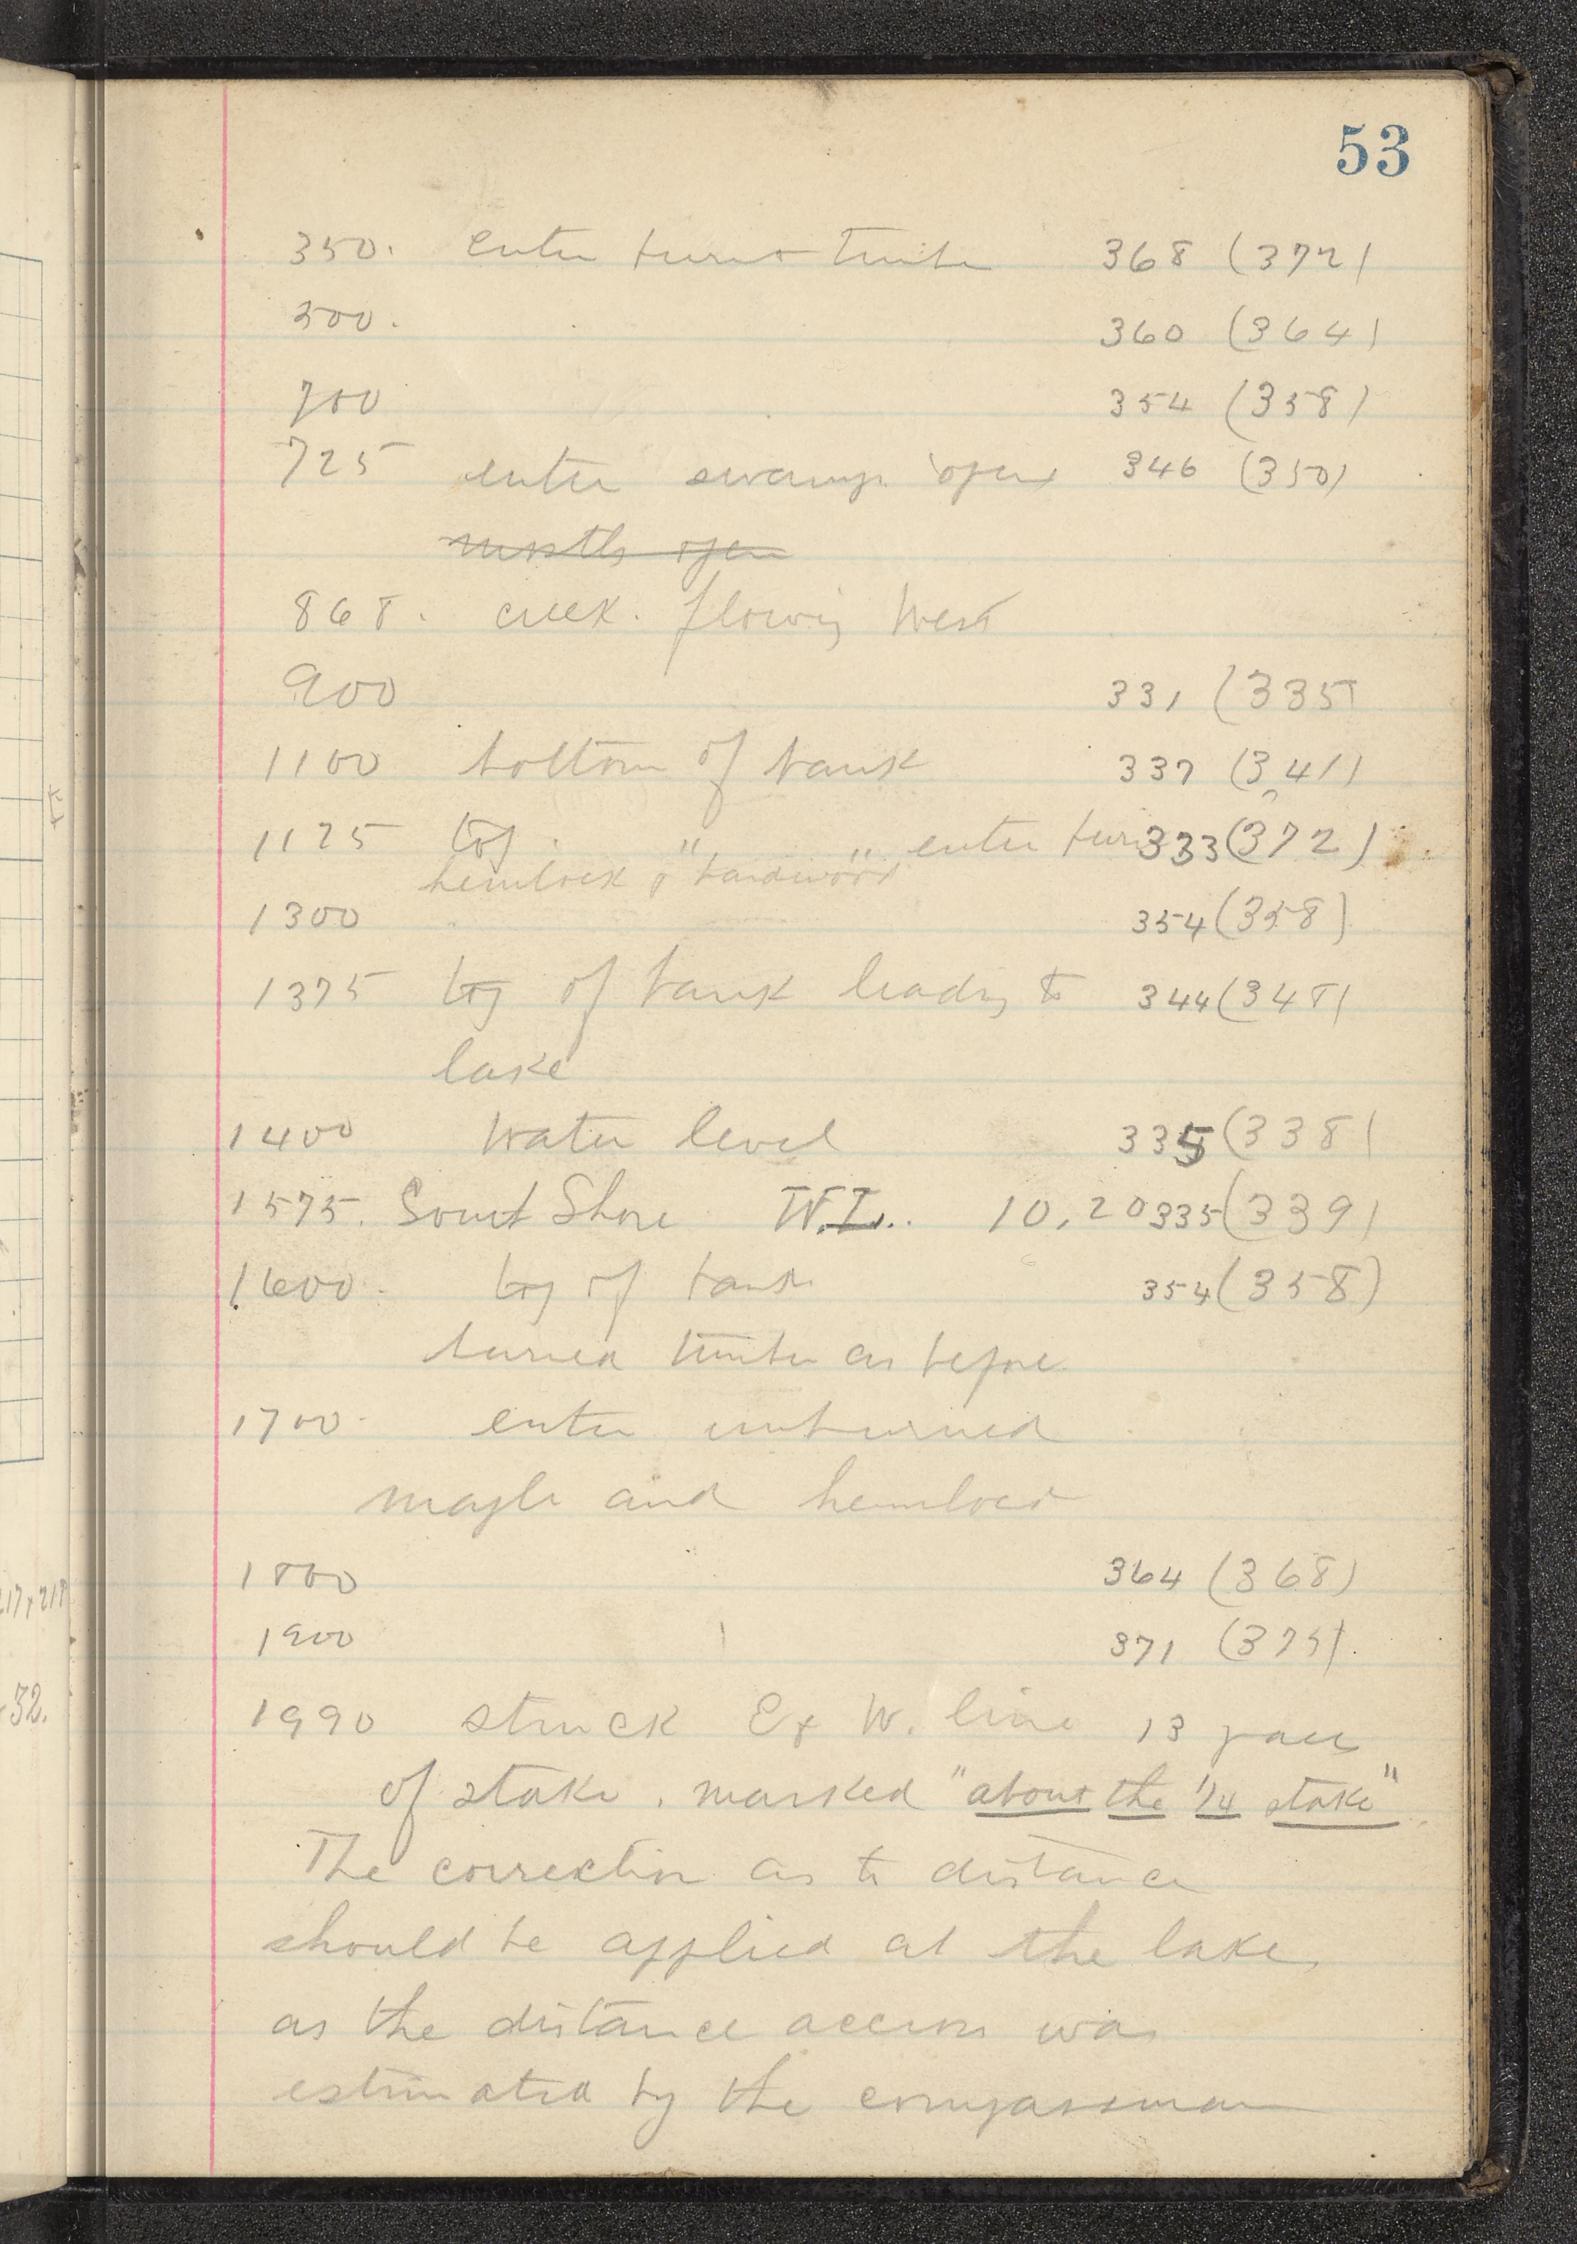 53
350. enter burnt timber 368 (372)
500. 360 (364)
700 354 (358)
725 enter swamp open 346 (350)
mostly open
868. creek. flowing West
900 331 (335
1100 bottom of bank 337 (341)
1125 top " " enter burnt 333 (372)
hemlock & hardwood
1300 354 (358)
1375 top of bank leading to 344 (348)
lake
1400 Water level 335 (338)
1575. South Shore W.L. 10,20 335 (339)
1600. top of bank 354 (358)
burned timber as before
1700. enter unburned
maple and hemlock
1800 364 (368)
1900 371 (375)
1990 struck E & W. line 13 paces
of stake. marked "about the 1/4 stake"
The correction as to distance
should be applied at the lake,
as the distance accross was
estimated by the compassman
217, 218
32.